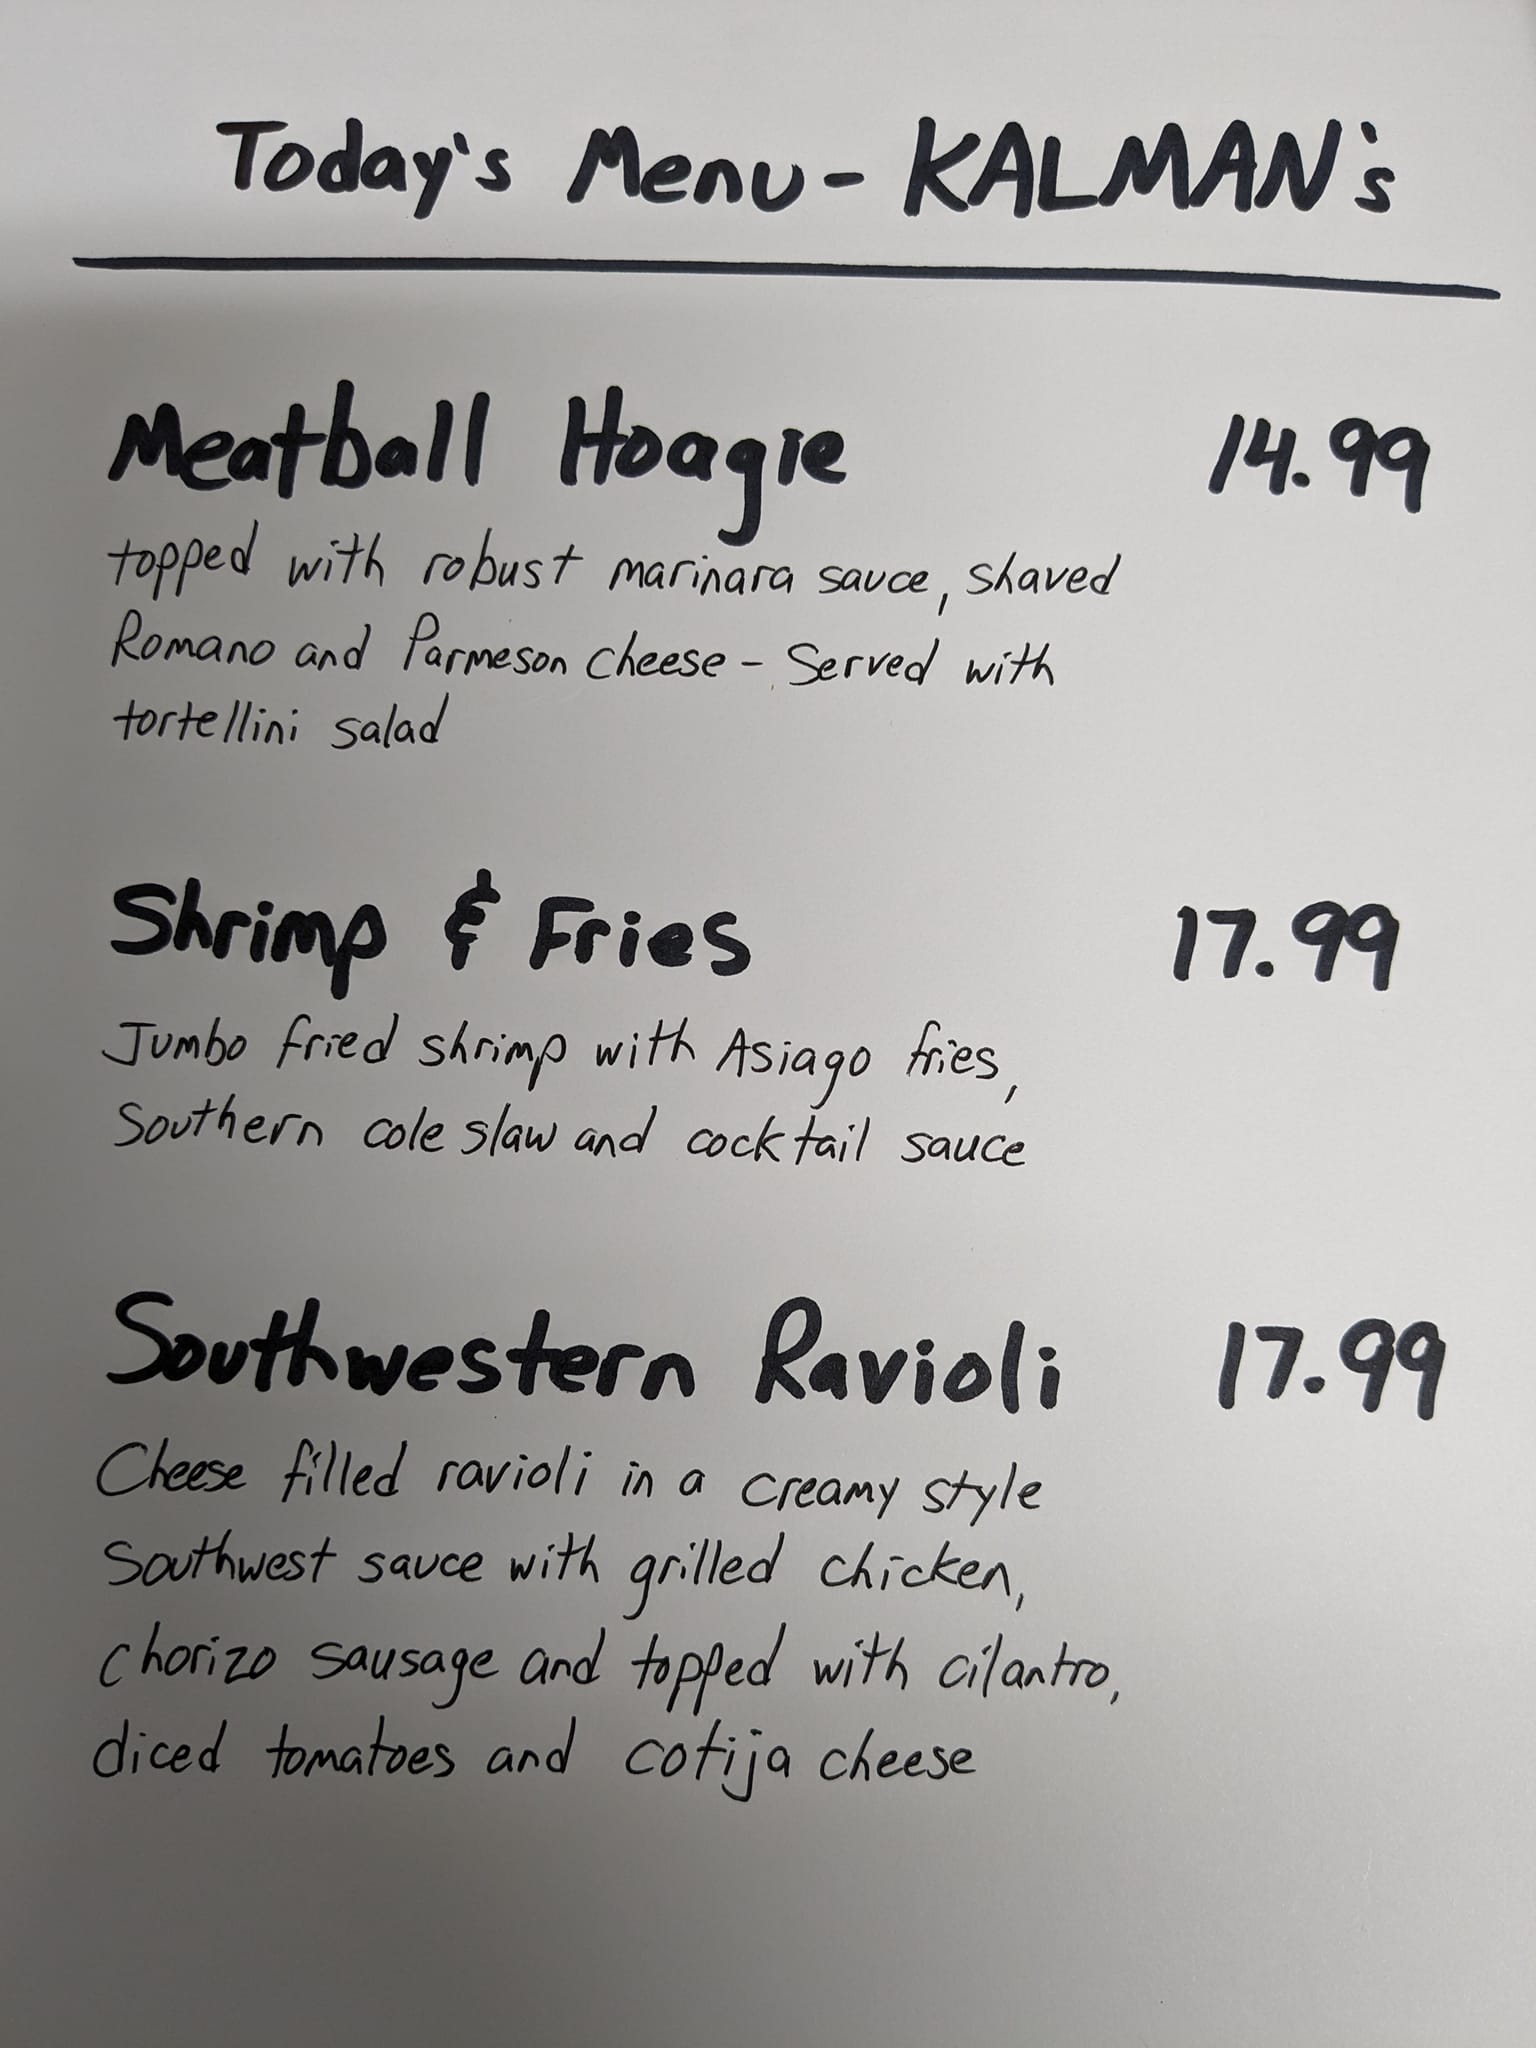 Today's Menu - KALMAN's
Meatball Hoagie 14.99
topped with robust marinara sauce, shaved
Romano and Parmeson cheese - Served with
tortellini salad
Shrimp & Fries 17.99
Jumbo fried shrimp with Asiago fries,
Southern cole slaw and cocktail sauce
Southwestern Ravioli 17.99
Cheese filled ravioli in a creamy style
Southwest sauce with grilled chicken,
chorizo sausage and topped with cilantro,
diced tomatoes and cotija cheese